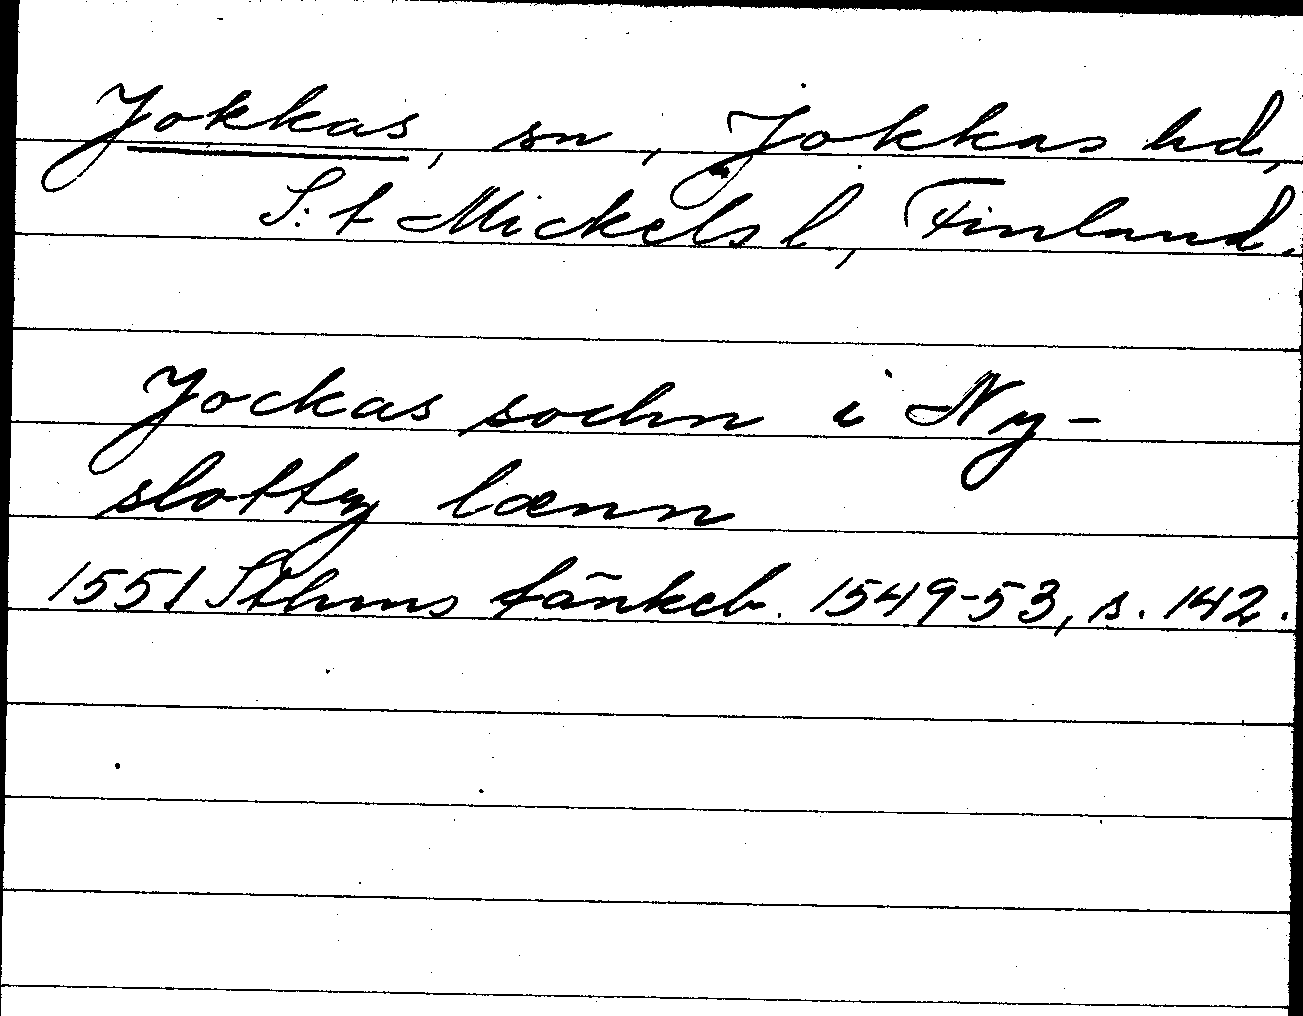 Jokkas, sn, Jokkas hd,
S:t Mickels l., Finland.
Jockas sochn i Ny-
slotty lænn
1551 Sthms tänkeb. 1549-53, s. 142.